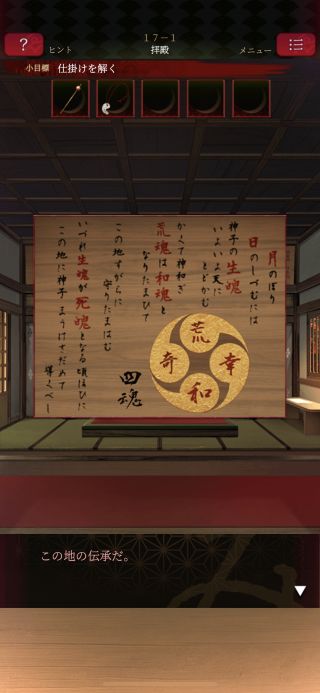 17-1
ヒント
拝殿
メニュー
小目標 仕掛けを解く
月のぼり
日のしづむには
神子の生魂
いよいよ天に
とどかむ
かくて神和ぎ
荒魂は和魂と
なりたまひて
この地すがらに
守りたまはむ
四魂
いづれ生魂が死魂となる頃ほひに
この地に神子まうけさだめて
導くべし
荒
幸
和
奇
この地の伝承だ。